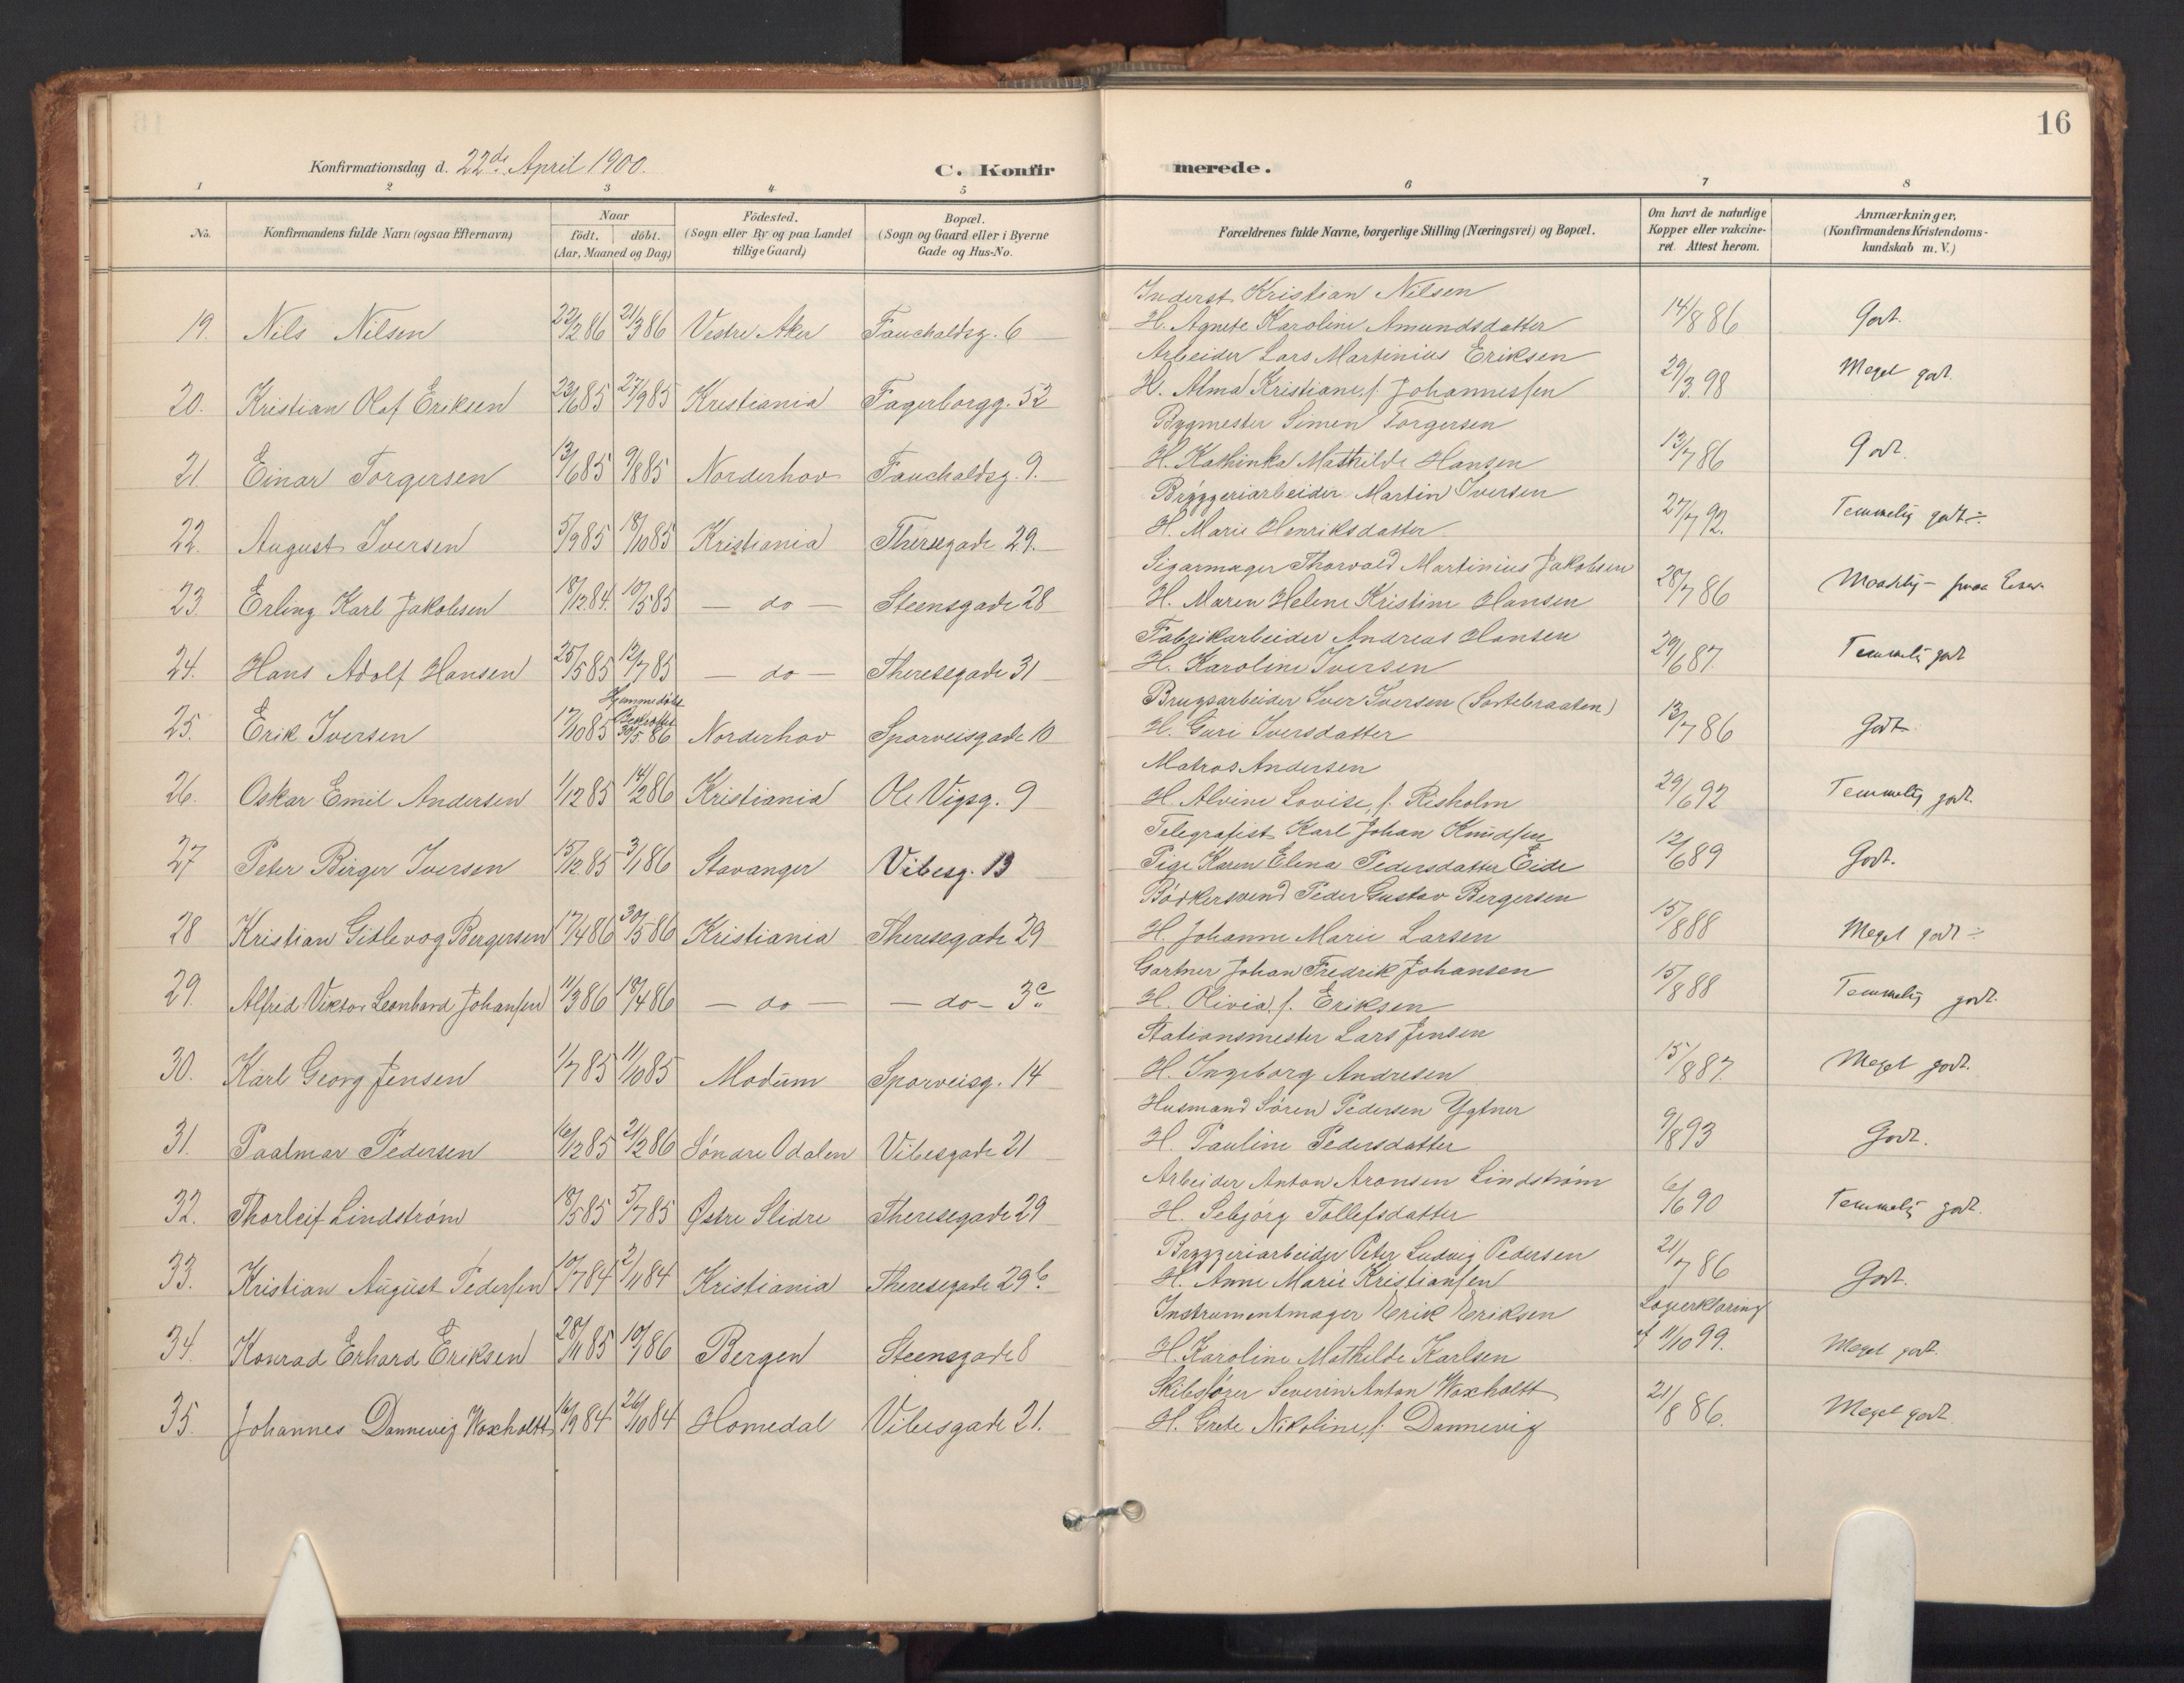 16
Konfirmationsdag d. 22de April 1900.
C. Konfirmerede.
1 2 3 4 5 6 7 8
No.
Konfirmandens fulde Navn (ogsaa Efternavn)
Naar
födt. döbt.
(Aar, Maaned og Dag)
Födested.
(Sogn eller By og paa Landet
tillige Gaard)
Bopæl.
(Sogn og Gaard eller i Byerne
Gade og Hus-No.
Forældrenes fulde Navne, borgerlige Stilling (Næringsvei) og Bopæl.
Om havt de naturlige
Kopper eller vakcine-
ret. Attest herom.
Anmærkninger.
(Konfirmandens Kristendoms-
kundskab m. V.)
Inderst Kristian Nilsen
19. Nils Nilsen 22/2 86 21/3 86 Vestre Aker Fauchaldsg. 6 H. Agnete Karoline Amundsdatter 14/8 86 Godt.
Arbeider Lars Martinius Eriksen
20. Kristian Olaf Eriksen 23/6 85 27/9 85 Kristiania Fagerborgg. 52 H. Alma Kristiane, f. Johannessen 29/3 98 Meget godt.
Bygmester Simen Torgersen
21. Einar Torgersen 13/6 85 9/8 85 Norderhov Fauchaldsg. 9. H. Kathinka Mathilde Hansen 13/7 86 Godt.
Bryggeriarbeider Martin Iversen
22. August Iversen 5/9 85 18/10 85 Kristiania Theresegade 29. H. Marie Henriksdatter 27/7 92. Temmelig godt ÷
Sigarmager Thorvald Martinius Jakobsen
23. Erling Karl Jakobsen 18/12 84. 10/5 85 — do — Steensgade 28 H. Maren Helene Kristine Hansen 28/7 86 Maadelig —
Fabrikarbeider Andreas Hansen
24. Hans Adolf Hansen 25/5 85 12/7 85 — do — Theresegade 31 H. Karoline Iversen 29/6 87. Temmelig godt
Hjemmedöbt
Brugsarbeider Iver Iversen (Sortebraaten)
25. Erik Iversen 17/10 85 30/5 86 Norderhov Sporveisgade 10 H. Guri Iversdatter 13/7 86 Godt
Matros Andersen
26. Oskar Emil Andersen 1/12 85 14/2 86 Kristiania Ole Vigsg. 9 H. Alvine Lovise, f. Risholm 29/6 92 Temmelig godt.
Telegrafist Karl Johan Knudsen
27 Peter Birger Iversen 15/12 85 3/1 86 Stavanger Vibesg. 13 Pige Karen Elena Pedersdatter Eide 12/6 89 Godt.
Bödkersvend Peder Gustav Bergersen
28 Kristian Gislevog Bergersen 17/4 86 30/5 86 Kristiania Theresegade 29 H. Johanne Marie Larsen 15/8 88 Meget godt ÷
Gartner Johan Fredrik Johansen
29. Alfred Viktor Leonhard Johansen 11/3 86 18/4 86 — do — — do — 3c H. Olivia, f. Eriksen 15/8 88 Temmelig godt.
Stationsmester Lars Jensen
30. Karl Georg Jensen 1/7 85 11/10 85 Modum Sporveisg. 14 H. Ingeborg Andresen 15/8 87. Meget godt.
Husmand Sören Pedersen Ygtner
31. Paalmar Pedersen 16/12 85 21/2 86 Söndre Odalen Vibesgade 21 H. Pauline Pedersdatter 9/8 93 Godt.
Arbeider Anton Aronsen Lindström
32. Thorleif Lindström 18/5 85 5/7 85 Østre Slidre Theresegade 29 H. Sebjörg Tollefsdatter 6/6 90 Temmelig godt.
Bryggeriarbeider Peter Ludvig Pedersen
33. Kristian August Pedersen 10/7 84 2/11 84 Kristiania Theresegade 29b. H. Anne Marie Kristiansen 21/7 86 Godt.
Instrumentmager Erik Eriksen Lægeerklæring
34. Konrad Erhard Eriksen 28/11 85 10/1 86 Bergen Steensgade 8 H. Karoline Mathilde Karlsen af 11/10 99. Meget godt.
Skibsförer Severin Anton Woxholtt
35. Johannes Dannevig Woxholtt 16/9 84 26/10 84 Homedal Vibesgade 21. H. Grete Nikoline, f. Dannevig 21/8 86. Meget godt.